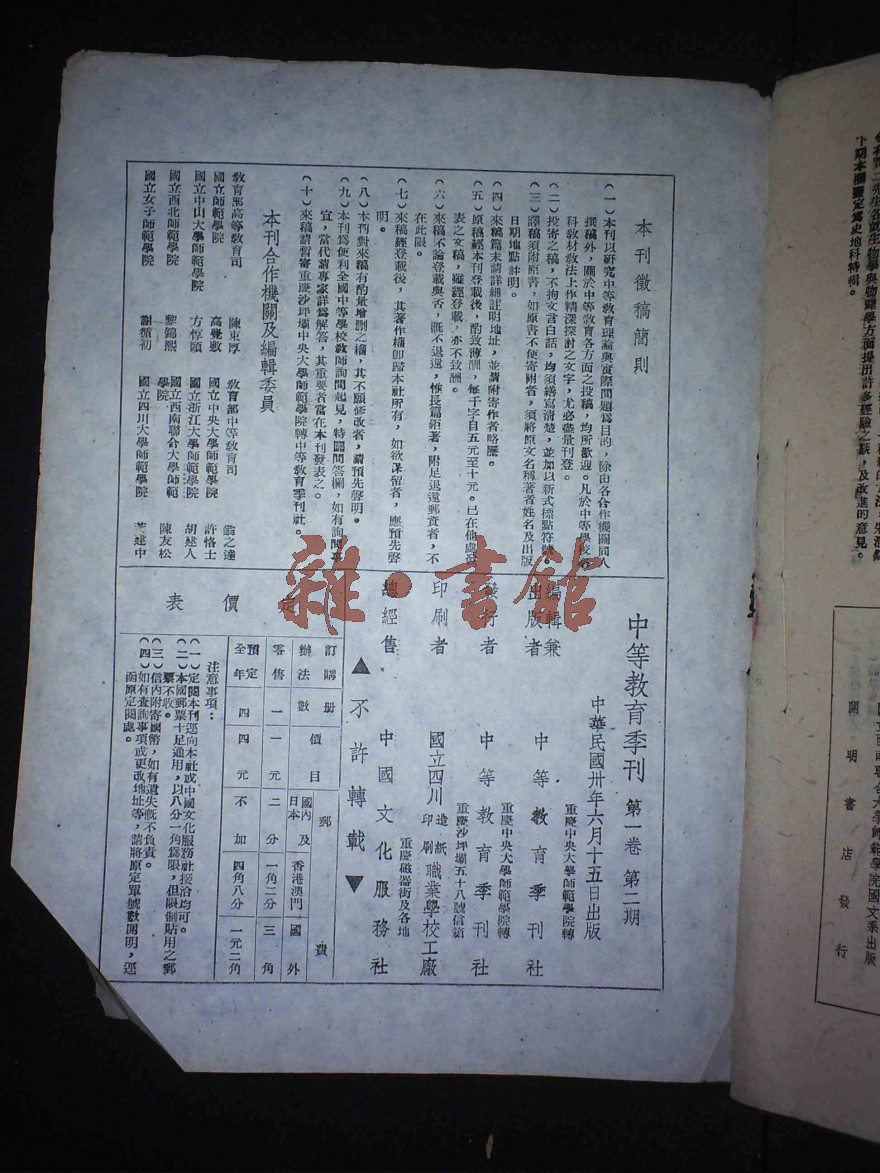 本刊徵稿簡則
(一)本刊以研究中等教育理論與實際問題爲目的，除由各合作機關同人
撰稿外，關於中等教育各方面之投稿，均所歡迎。凡於中等學校各
科教材教法上作精深探討之文字，尤必儘量刊登。
(二)投寄之稿，不拘文言白話，均須繕寫清楚，並加以新式標點符號。
(三)譯稿須附原書，如原書不便寄附者，須將原文名稱著者姓名及出版
日期地點註明。
(四)來稿篇末請詳細註明地址，並請附寄作者略歷。
(五)原稿經本刊登載後，酌致薄酬，每千字自五元至十元。已在他處發
表之文稿，雖經登載，亦不致酬。
(六)來稿不論登載與否，概不退還，惟長篇鉅著，附足退還郵資者，不
在此限。
(七)來稿經登載後，其著作權卽歸本社所有，如欲保留者，應預先聲
明。
(八)本刊對來稿有酌量增删之權，其不願修改者，請預先聲明。
(九)本刊爲便利全國中等學校教師詢問起見，特闢問答欄，如有詢問事
宜，當代請專家詳爲解答，其重要者當在本刊發表之。
(十)來稿請寄重慶沙坪壩中央大學師範學院轉中等教育季刊社。
本刊合作機關及編輯委員
教育部高等教育司 陳東厚 教育部中等教育司 翁之達
國立師範學院 高覺敷 國立中央大學師範學院 許恪士
國立中山大學師範學院 方惇頤 國立浙江大學師範學院 胡建人
國立西北師範學院 黎錦熙 國立西南聯合大學師範學院 陳友松
國立女子師範學院 謝循初 國立四川大學師範學院 建中
中等教育季刊 第一卷 第二期
中華民國卅年六月十五日出版
編輯兼出版者 中等教育季刊社 重慶中央大學師範學院轉
發行者 中等教育季刊社 重慶中央大學師範學院轉 重慶沙坪壩五十八號信箱
印刷者 國立四川造紙印刷職業學校工廠
總經售 中國文化服務社 重慶磁器街及各地
▲不許轉載▼
定價表
訂購辦法 册數 價目 郵費 國內及日本 香港澳門 國外
零售 一 一元 二分 一角二分 三角
預定全年 四 四元 不加 四角八分 一元二角
注意事項：
(一)定閱本刊逕向本社或中國文化服務社接洽均可。
(二)本國郵票十足通用，以八分一角爲限，但限制貼用之郵
票不收。
(三)信內附寄國幣，如有遺失概不負責。
(四)如有查詢事項或更改地址等，請將原定單號數開明，逕
函原定閱處。
雜·書館
下期本刊擬定爲史地科特輯。
開明書店發行